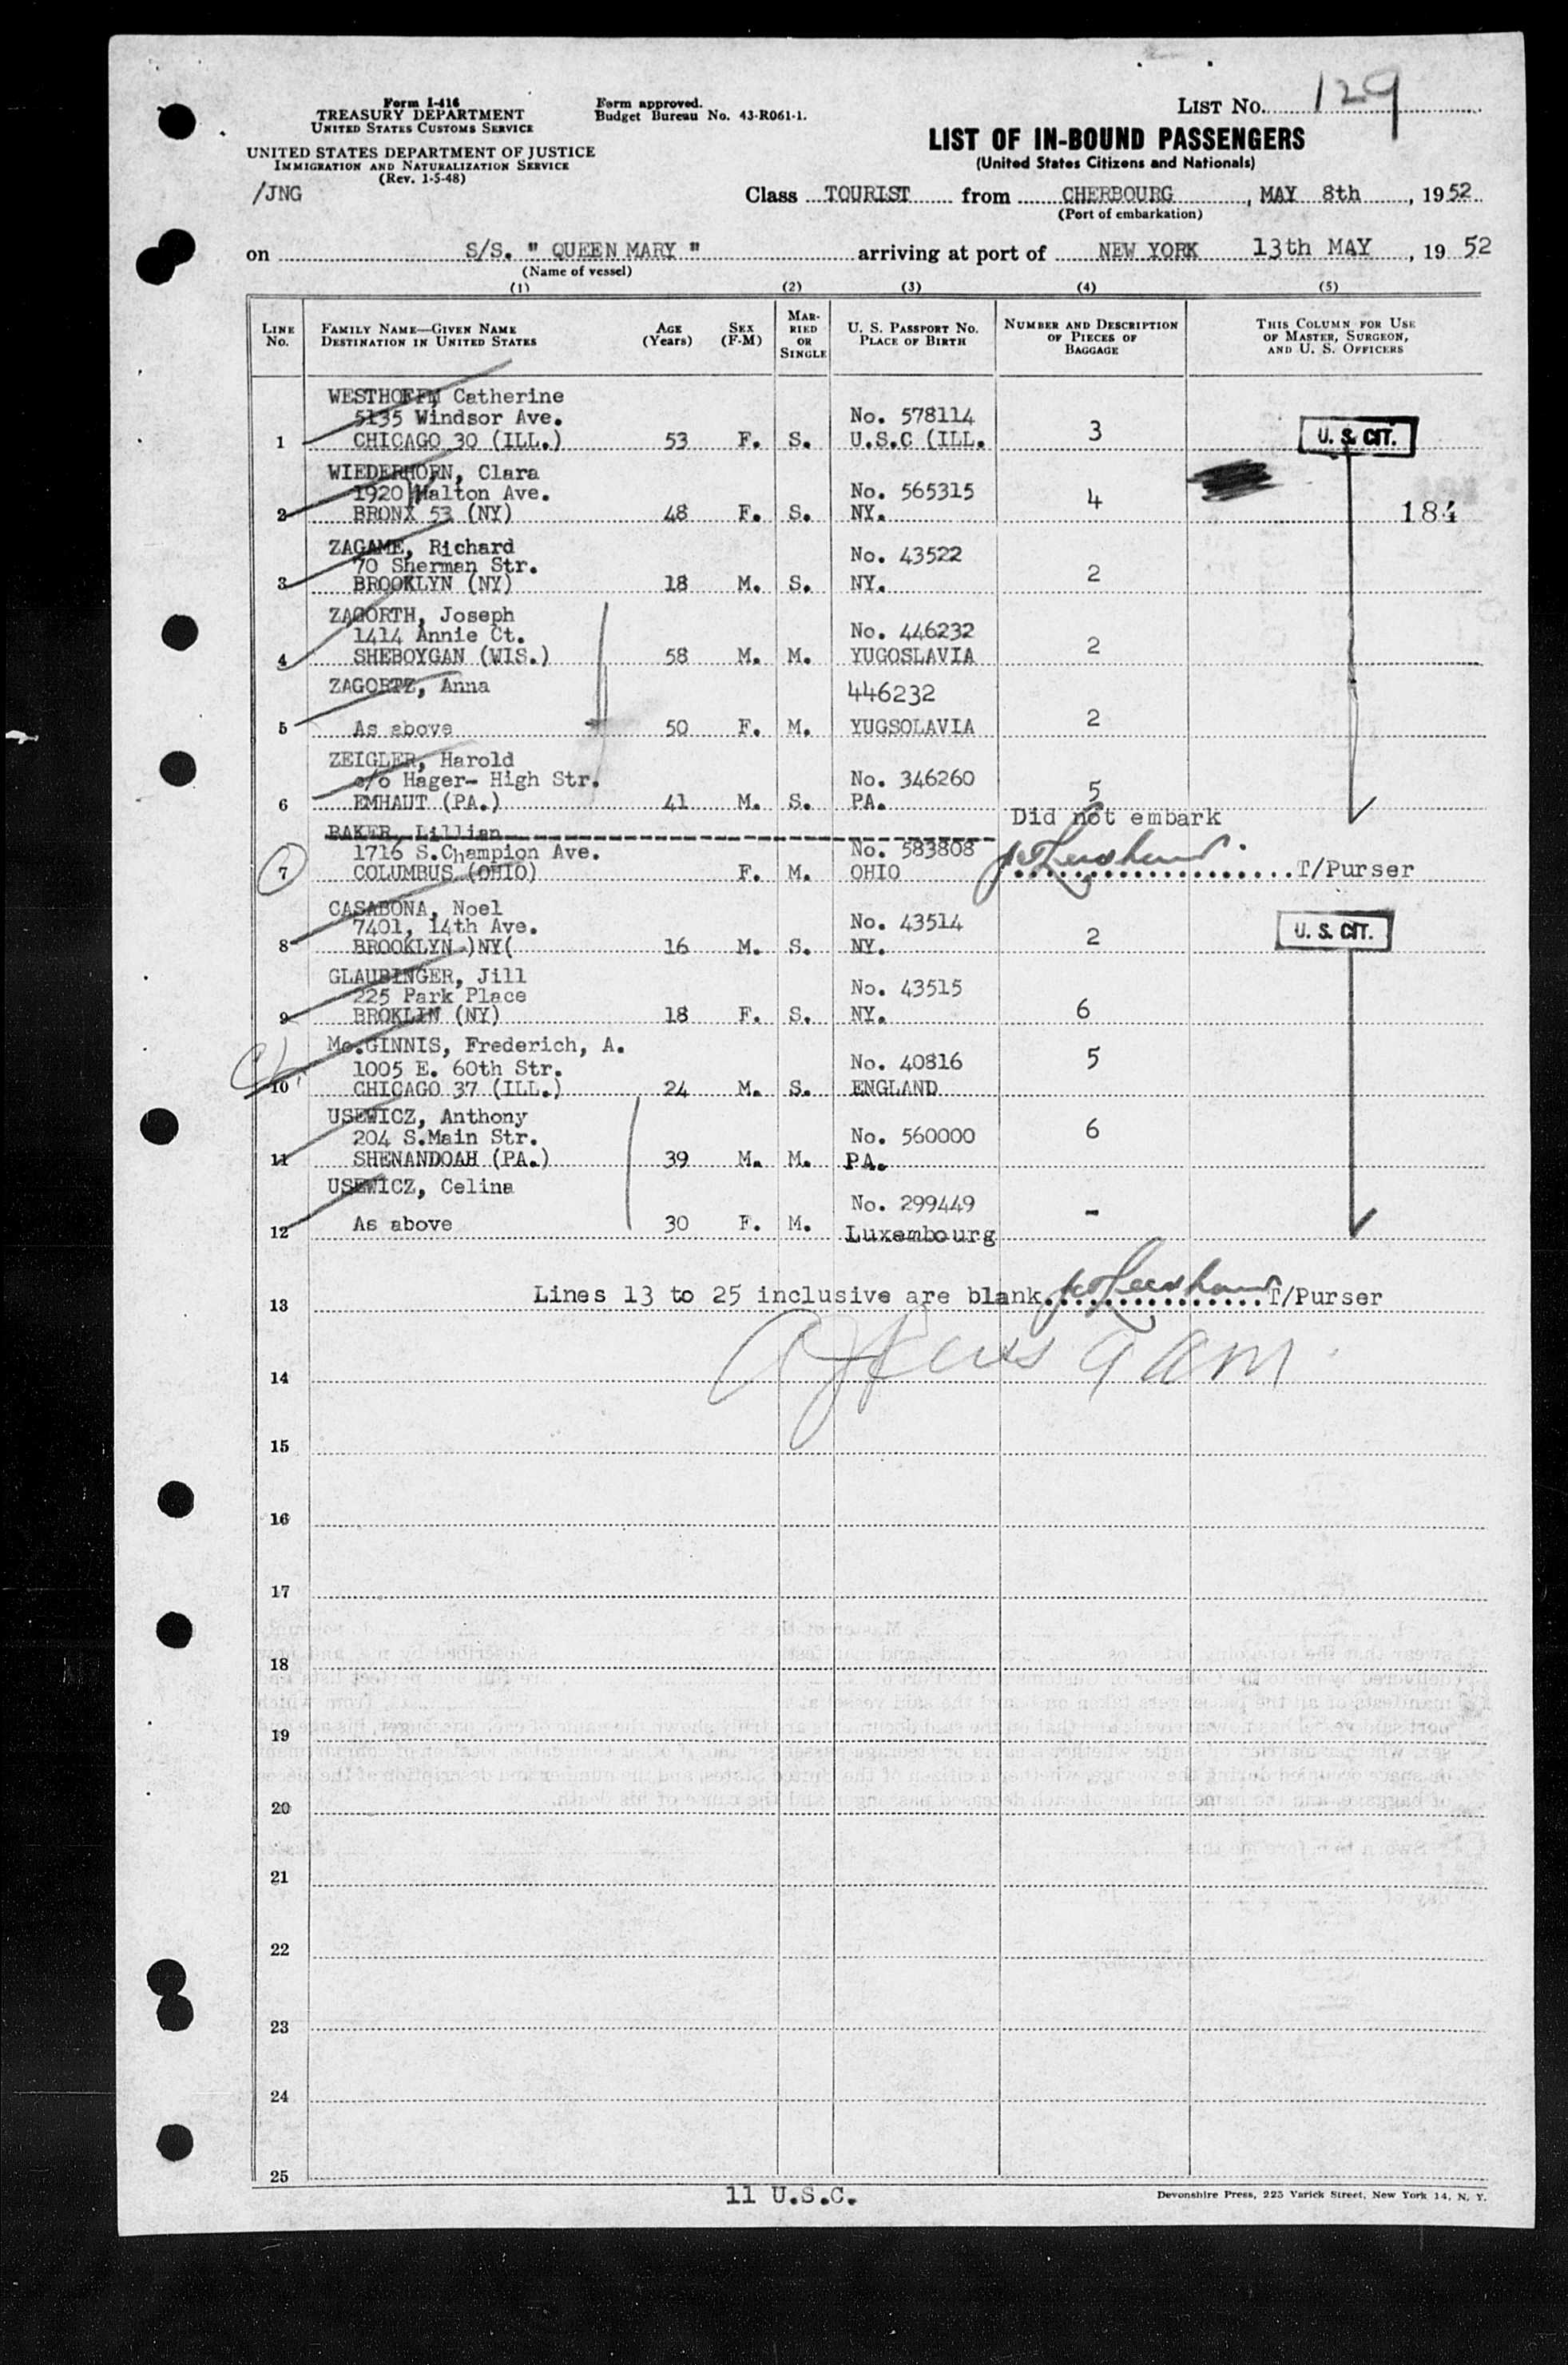 Form I-416
TREASURY DEPARTMENT
UNITED STATES CUSTOMS SERVICE
UNITED STATES DEPARTMENT OF JUSTICE
IMMIGRATION AND NATURALIZATION SERVICE
(Rev. 1-5-48)
/JNG
Form approved.
Budget Bureau No. 43-R061-1.
LIST NO. 129
LIST OF IN-BOUND PASSENGERS
(United States Citizens and Nationals)
Class TOURIST from CHERBOURG, MAY 8th, 1952
(Port of embarkation)
on S/S. " QUEEN MARY " arriving at port of NEW YORK 13th MAY, 1952
(Name of vessel)
(1) (2) (3) (4) (5)
LINE NO. FAMILY NAME—GIVEN NAME DESTINATION IN UNITED STATES AGE (YEARS) SEX (F-M) MARRIED OR SINGLE U. S. PASSPORT NO. PLACE OF BIRTH NUMBER AND DESCRIPTION OF PIECES OF BAGGAGE THIS COLUMN FOR USE OF MASTER, SURGEON, AND U. S. OFFICERS
WESTHOFFM Catherine
5135 Windsor Ave. No. 578114
1 CHICAGO 30 (ILL.) 53 F. S. U.S.C (ILL. 3 U. S. CIT.
WIEDERHORN, Clara
1920 Walton Ave. No. 565315
2 BRONX 53 (NY) 48 F. S. NY. 4 184
ZAGAME, Richard
70 Sherman Str. No. 43522
3 BROOKLYN (NY) 18 M. S. NY. 2
ZAGORTH, Joseph
1414 Annie Ct. No. 446232
4 SHEBOYGAN (WIS.) 58 M. M. YUGOSLAVIA 2
ZAGORTZ, Anna 446232
5 As above 50 F. M. YUGSOLAVIA 2
ZEIGLER, Harold
c/o Hager- High Str. No. 346260
6 EMHAUT (PA.) 41 M. S. PA. 5
BAKER, Lillian Did not embark
1716 S.Champion Ave. No. 583808
7 COLUMBUS (OHIO) F. M. OHIO T/Purser
CASABONA, Noel
7401, 14th Ave. No. 43514
8 BROOKLYN )NY( 16 M. S. NY. 2 U. S. CIT.
GLAUBINGER, Jill
225 Park Place No. 43515
9 BROKLIN (NY) 18 F. S. NY. 6
Mc.GINNIS, Frederich, A.
1005 E. 60th Str. No. 40816 5
10 CHICAGO 37 (ILL.) 24 M. S. ENGLAND
USEWICZ, Anthony
204 S.Main Str. No. 560000 6
11 SHENANDOAH (PA.) 39 M. M. PA.
USEWICZ, Celina No. 299449
12 As above 30 F. M. Luxembourg -
13 Lines 13 to 25 inclusive are blank T/Purser
9 am
14
15
16
17
18
19
20
21
22
23
24
25
11 U.S.C.
Devonshire Press, 225 Varick Street, New York 14, N. Y.